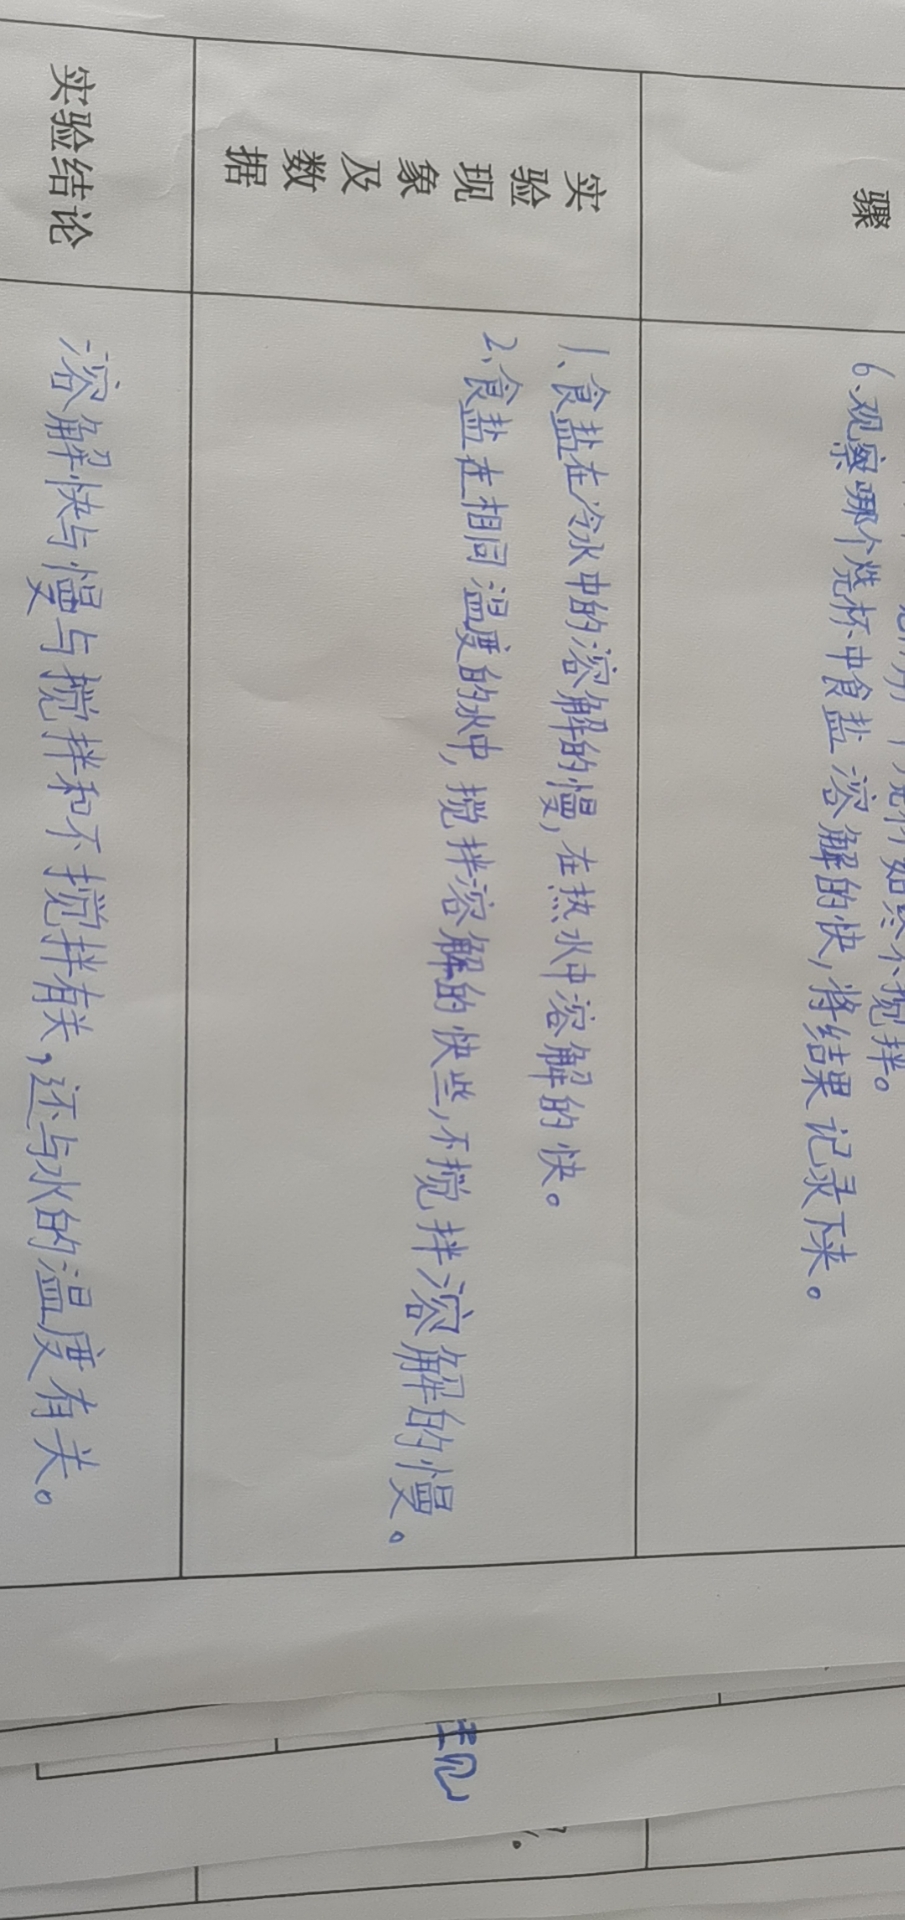 骤
始终不搅拌。
6、观察哪个烧杯中食盐溶解的快,将结果记录下来。
实验现象及数据
1、食盐在冷水中的溶解的慢,在热水中溶解的快。
2、食盐在相同温度的水中,搅拌溶解的快些,不搅拌溶解的慢。
实验结论
溶解快与慢与搅拌和不搅拌有关,还与水的温度有关。